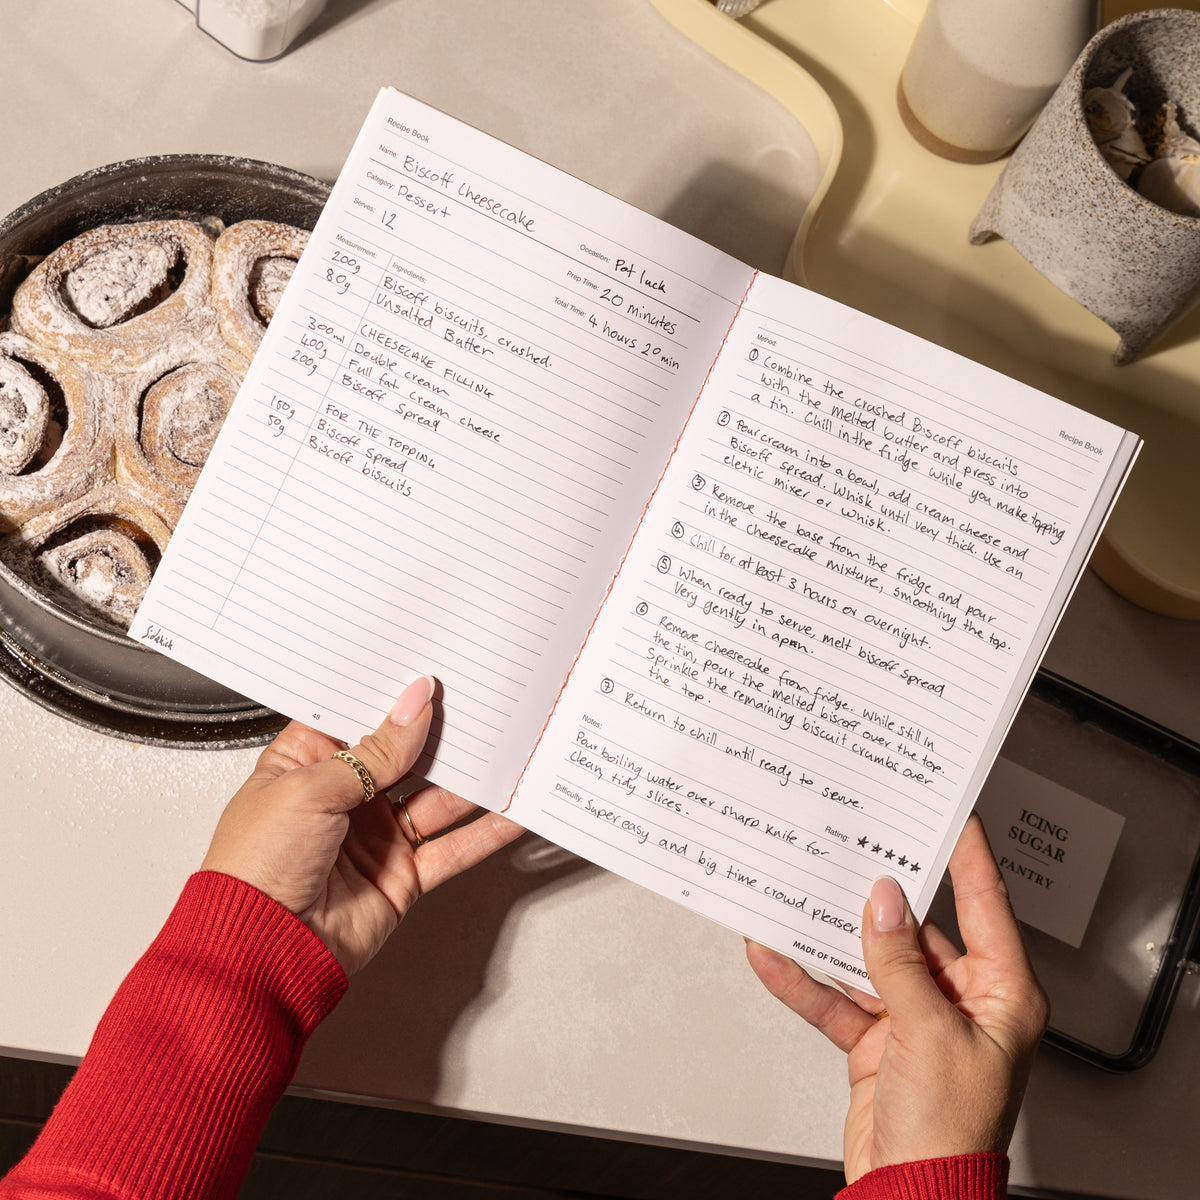 Recipe Book
Name: Biscoff Cheesecake
Category: Dessert
Occasion: Pot luck
Serves: 12
Prep Time: 20 minutes
Total Time: 4 hours 20 min
Measurement: Ingredients:
200g Biscoff biscuits, crushed.
80g Unsalted Butter
CHEESECAKE FILLING
300ml Double cream
400g Full fat cream cheese
200g Biscoff Spread
FOR THE TOPPING
150g Biscoff Spread
50g Biscoff biscuits
Sidekick
48
Recipe Book
Method:
① Combine the crushed Biscoff biscuits
with the melted butter and press into
a tin. Chill in the fridge while you make topping
② Pour cream into a bowl, add cream cheese and
Biscoff spread. Whisk until very thick. Use an
eletric mixer or whisk.
③ Remove the base from the fridge and pour
in the cheesecake mixture, smoothing the top.
④ Chill for at least 3 hours or overnight.
⑤ When ready to serve, melt biscoff spread
Very gently in a pan.
⑥ Remove cheesecake from fridge. While still in
the tin, pour the melted biscoff over the top.
Sprinkle the remaining biscuit crumbs over
the top.
⑦ Return to chill until ready to serve.
Notes:
Pour boiling water over sharp knife for
clean, tidy slices.
Rating: ★★★★★
Difficulty: Super easy and big time crowd pleaser.
49
MADE OF TOMORROW
ICING
SUGAR
PANTRY